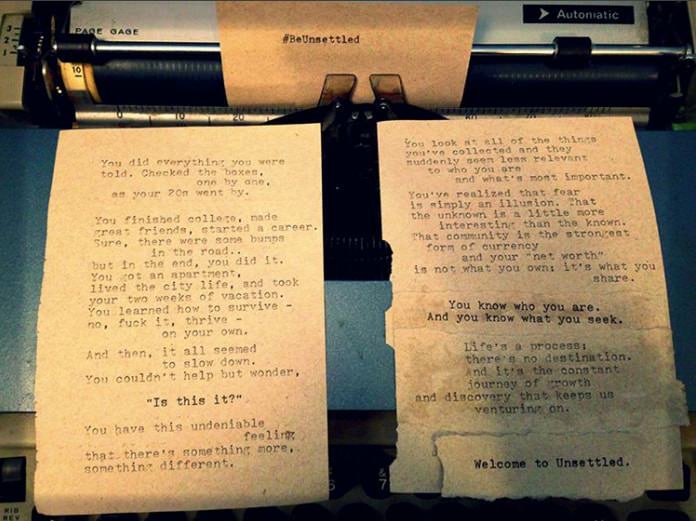 Automatic
PAGE GAGE
#BeUnsettled
3
2
1
10
0
10
20
You did everything you were
told. Checked the boxes,
one by one,
as your 20s went by.
You finished college, made
great friends, started a career.
Sure, there were some bumps
in the road..
but in the end, you did it.
You got an apartment,
lived the city life, and took
your two weeks of vacation.
You learned how to survive -
no, fuck it, thrive -
on your own.
And then, it all seemed
to slow down.
You couldn't help but wonder,
"Is this it?"
You have this undeniable
feeling
that there's something more,
something different.
You look at all of the things
you've collected and they
suddenly seem less relevant
to who you are
and what's most important.
You've realized that fear
is simply an illusion. That
the unknown is a little more
interesting than the known.
That community is the strongest
form of currency
and your "net worth"
is not what you own; it's what you
share.
You know who you are.
And you know what you seek.
Life's a process;
there's no destination.
And it's the constant
journey of growth
and discovery that keeps us
venturing on.
Welcome to Unsettled.
RIB
REV
6
&
7